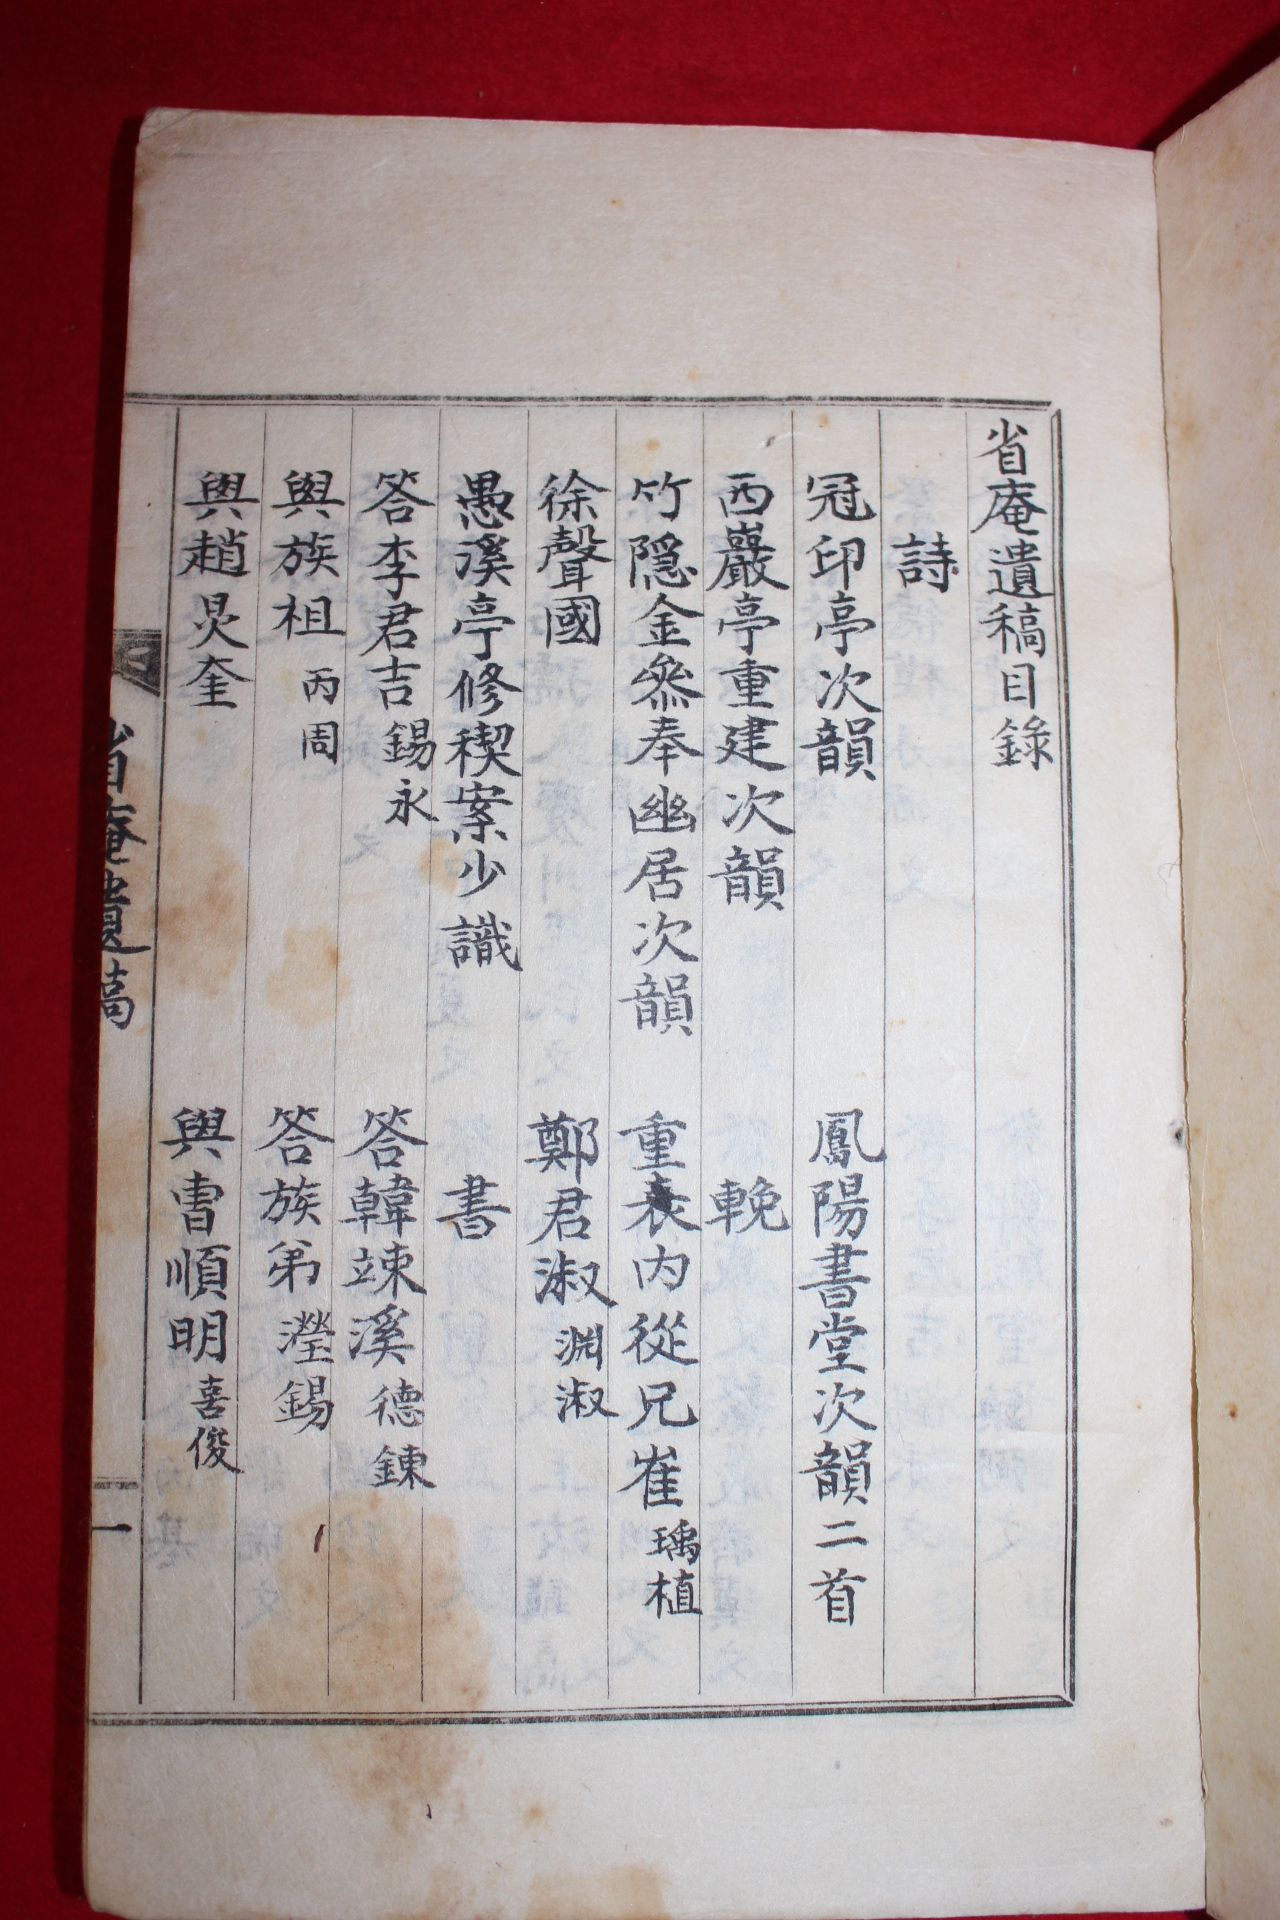 省庵遺稿目錄
詩
冠印亭次韻 鳳陽書堂次韻二首
西巖亭重建次韻 輓
竹隱金叅奉幽居次韻 重表內從兄崔瑀植
徐聲國 鄭君淑淵淑
愚溪亭修稧案少識 書
答李君吉錫永 答韓竦溪德鍊
與族祖丙周 答族弟瀅錫
與趙炅奎 與曺順明喜俊
省庵遺稿 一